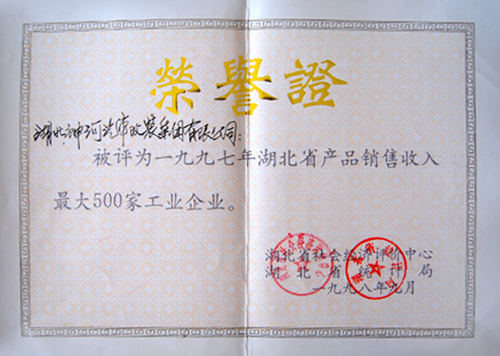 榮譽證
湖北神河汽车改装集团有限公司:
被评为一九九七年湖北省产品销售收入
最大500家工业企业。
湖北省社会经济评价中心
湖北省统计局
一九九八年九月